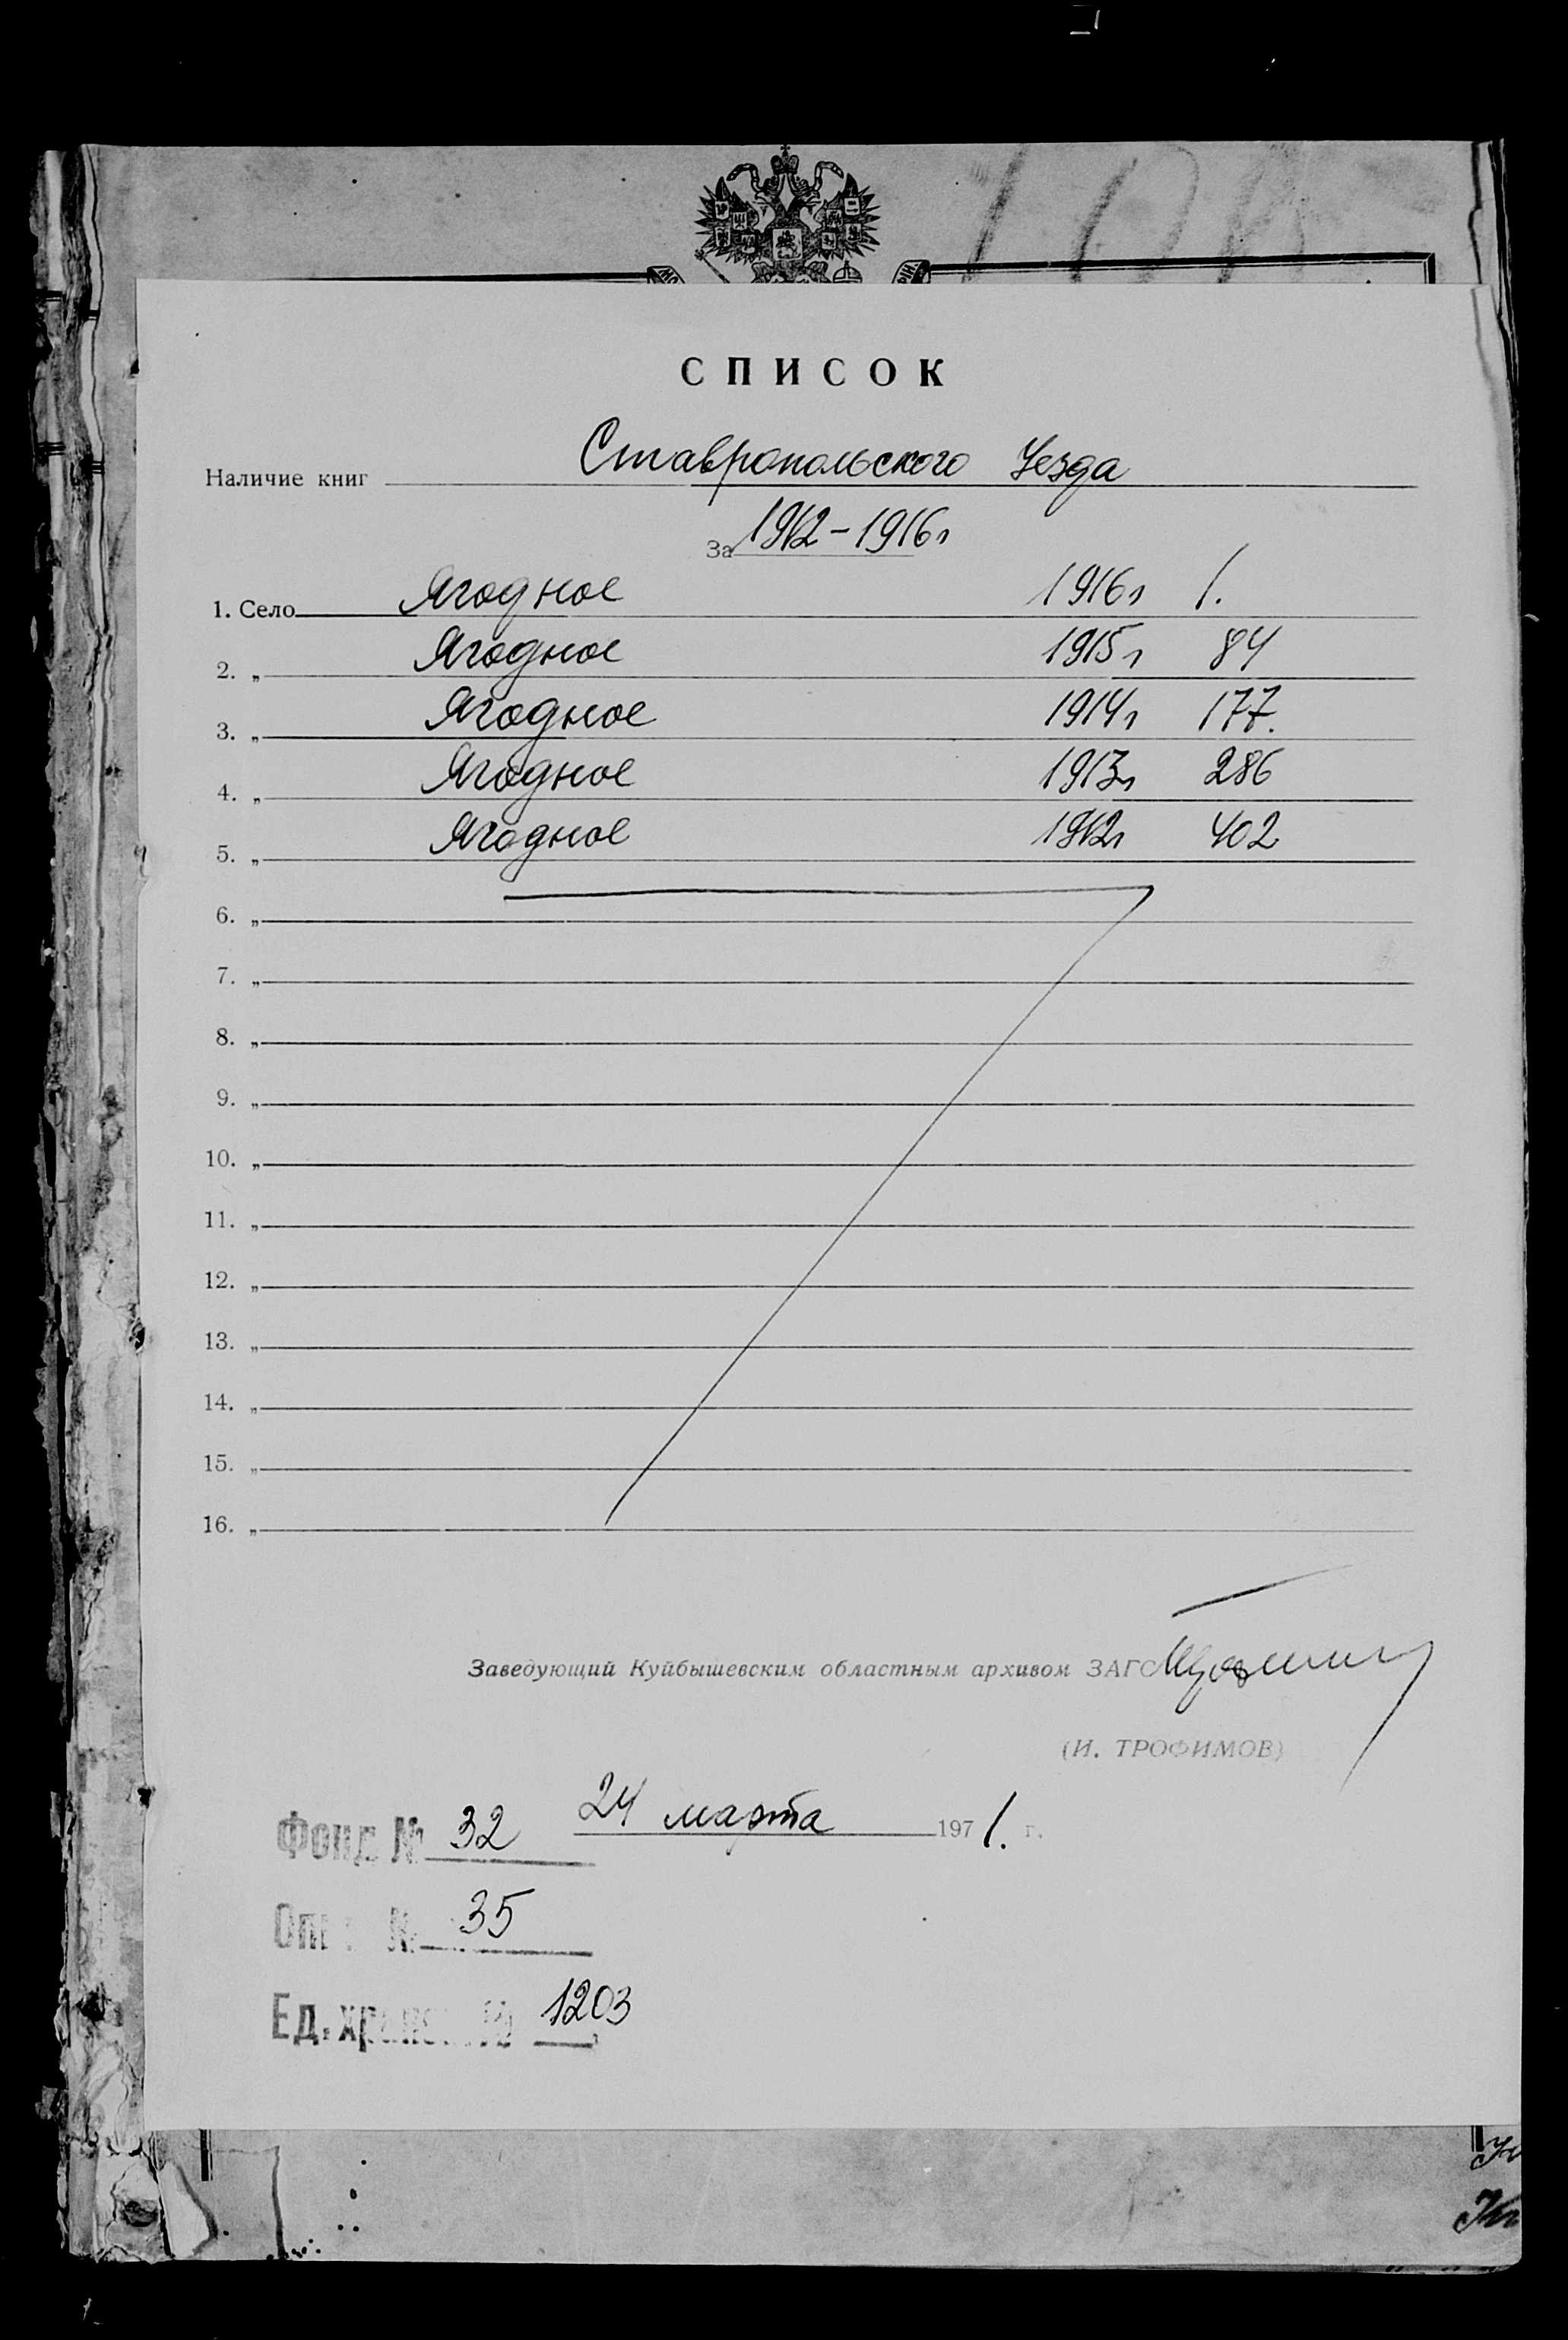 СПИСОК
Наличие книг Ставропольского Уезда
За 1912-1916г
1. Село Ягодное 1916г 1.
2. „ Ягодное 1915г 84
3. „ Ягодное 1914г 177.
4. „ Ягодное 1913г 286
5. „ Ягодное 1912г 402
6. „
7. „
8. „
9. „
10. „
11. „
12. „
13. „
14. „
15. „
16. „
Заведующий Куйбышевским областным архивом ЗАГС
(И. ТРОФИМОВ)
24 марта 1971. г.
Фонд № 32
Оп № 35
Ед. хран № 1203